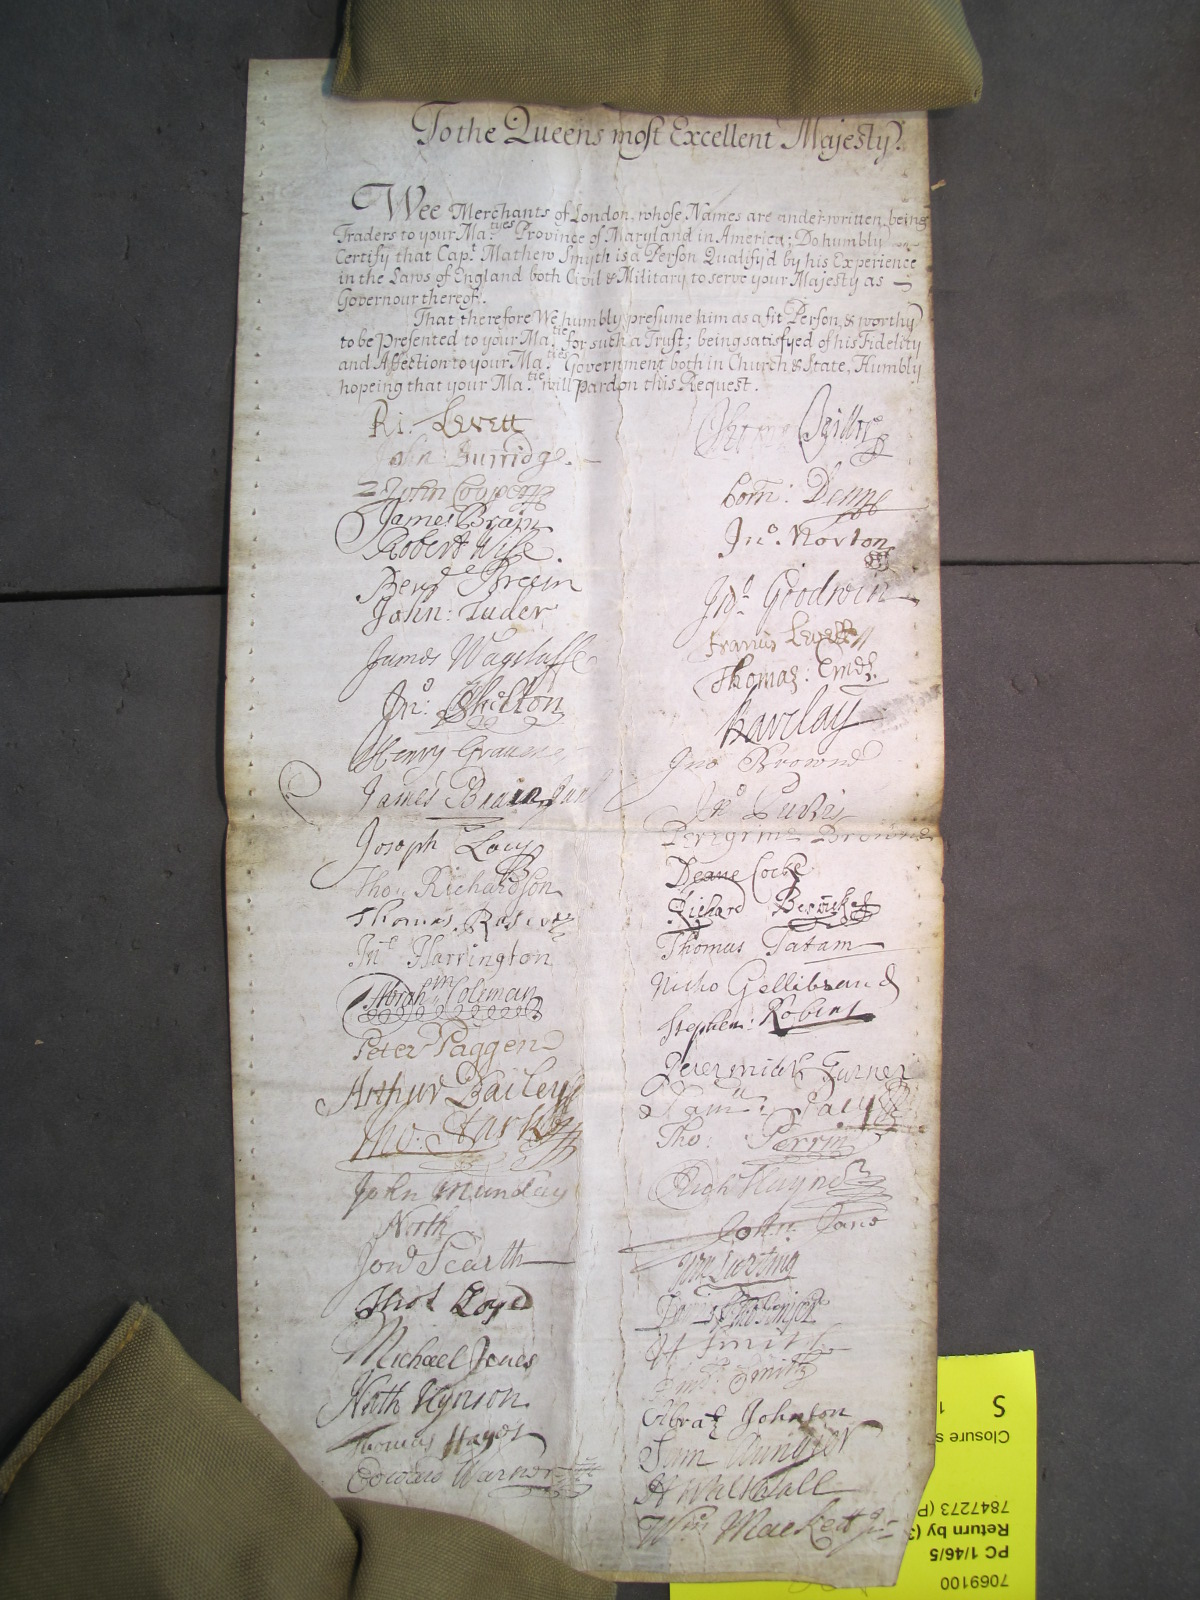 To the Queens most Excellent Majesty.
Wee Merchants of London, whose Names are under-written, being
Traders to your Ma.ties Province of Maryland in America; Do humbly
Certify that Cap.t Mathew Smyth is a Person Qualify'd by his Experience
in the Laws of England both Civil & Military to serve your Majesty as
Governour thereof.
That therefore We humbly presume him as a fit Person, & worthy
to be presented to your Ma.tie for such a Trust; being satisfyed of his Fidelity
and Affection to your Ma.ties Government both in Church & State, Humbly
hoping that your Ma.tie will pardon this Request.
Ri: Levett
John Burridge
John Cooper
James Brain
Robert Wise
John: Tuder
James Wagstaffe
Jno: Shelton
Henry
James Brain Jun
Joseph Lacy
Tho: Richardson
Thomas
Jno Harrington
Abrahm Coleman
Peter Paggen
Arthur Bailey
Tho. Starke
John Munday
North
Jon Scarth
Lloyd
Michael Jones
Nath Hynson
Thomas Hayes
Edward Warner
Corn: Denne
Jno. Norton
Jno Goodwin
Francis Levett
Thomas:
Barclay
Jno Browne
Jno Purvis
Peregrine Browne
Deane Cocke
Richard Beswicke
Thomas Tatam
Nicho Gellibrand
Stephen: Robins
Jeremiah Turner
Sam:
Tho: Perrin
Hugh Hayne
John Jane
H Smith
Smith
Abra: Johnson
Sam
H Walthall
Wm Mackett Jr
S
1
Closure s
7847273 (P
Return by (3
PC 1/46/5
7069100